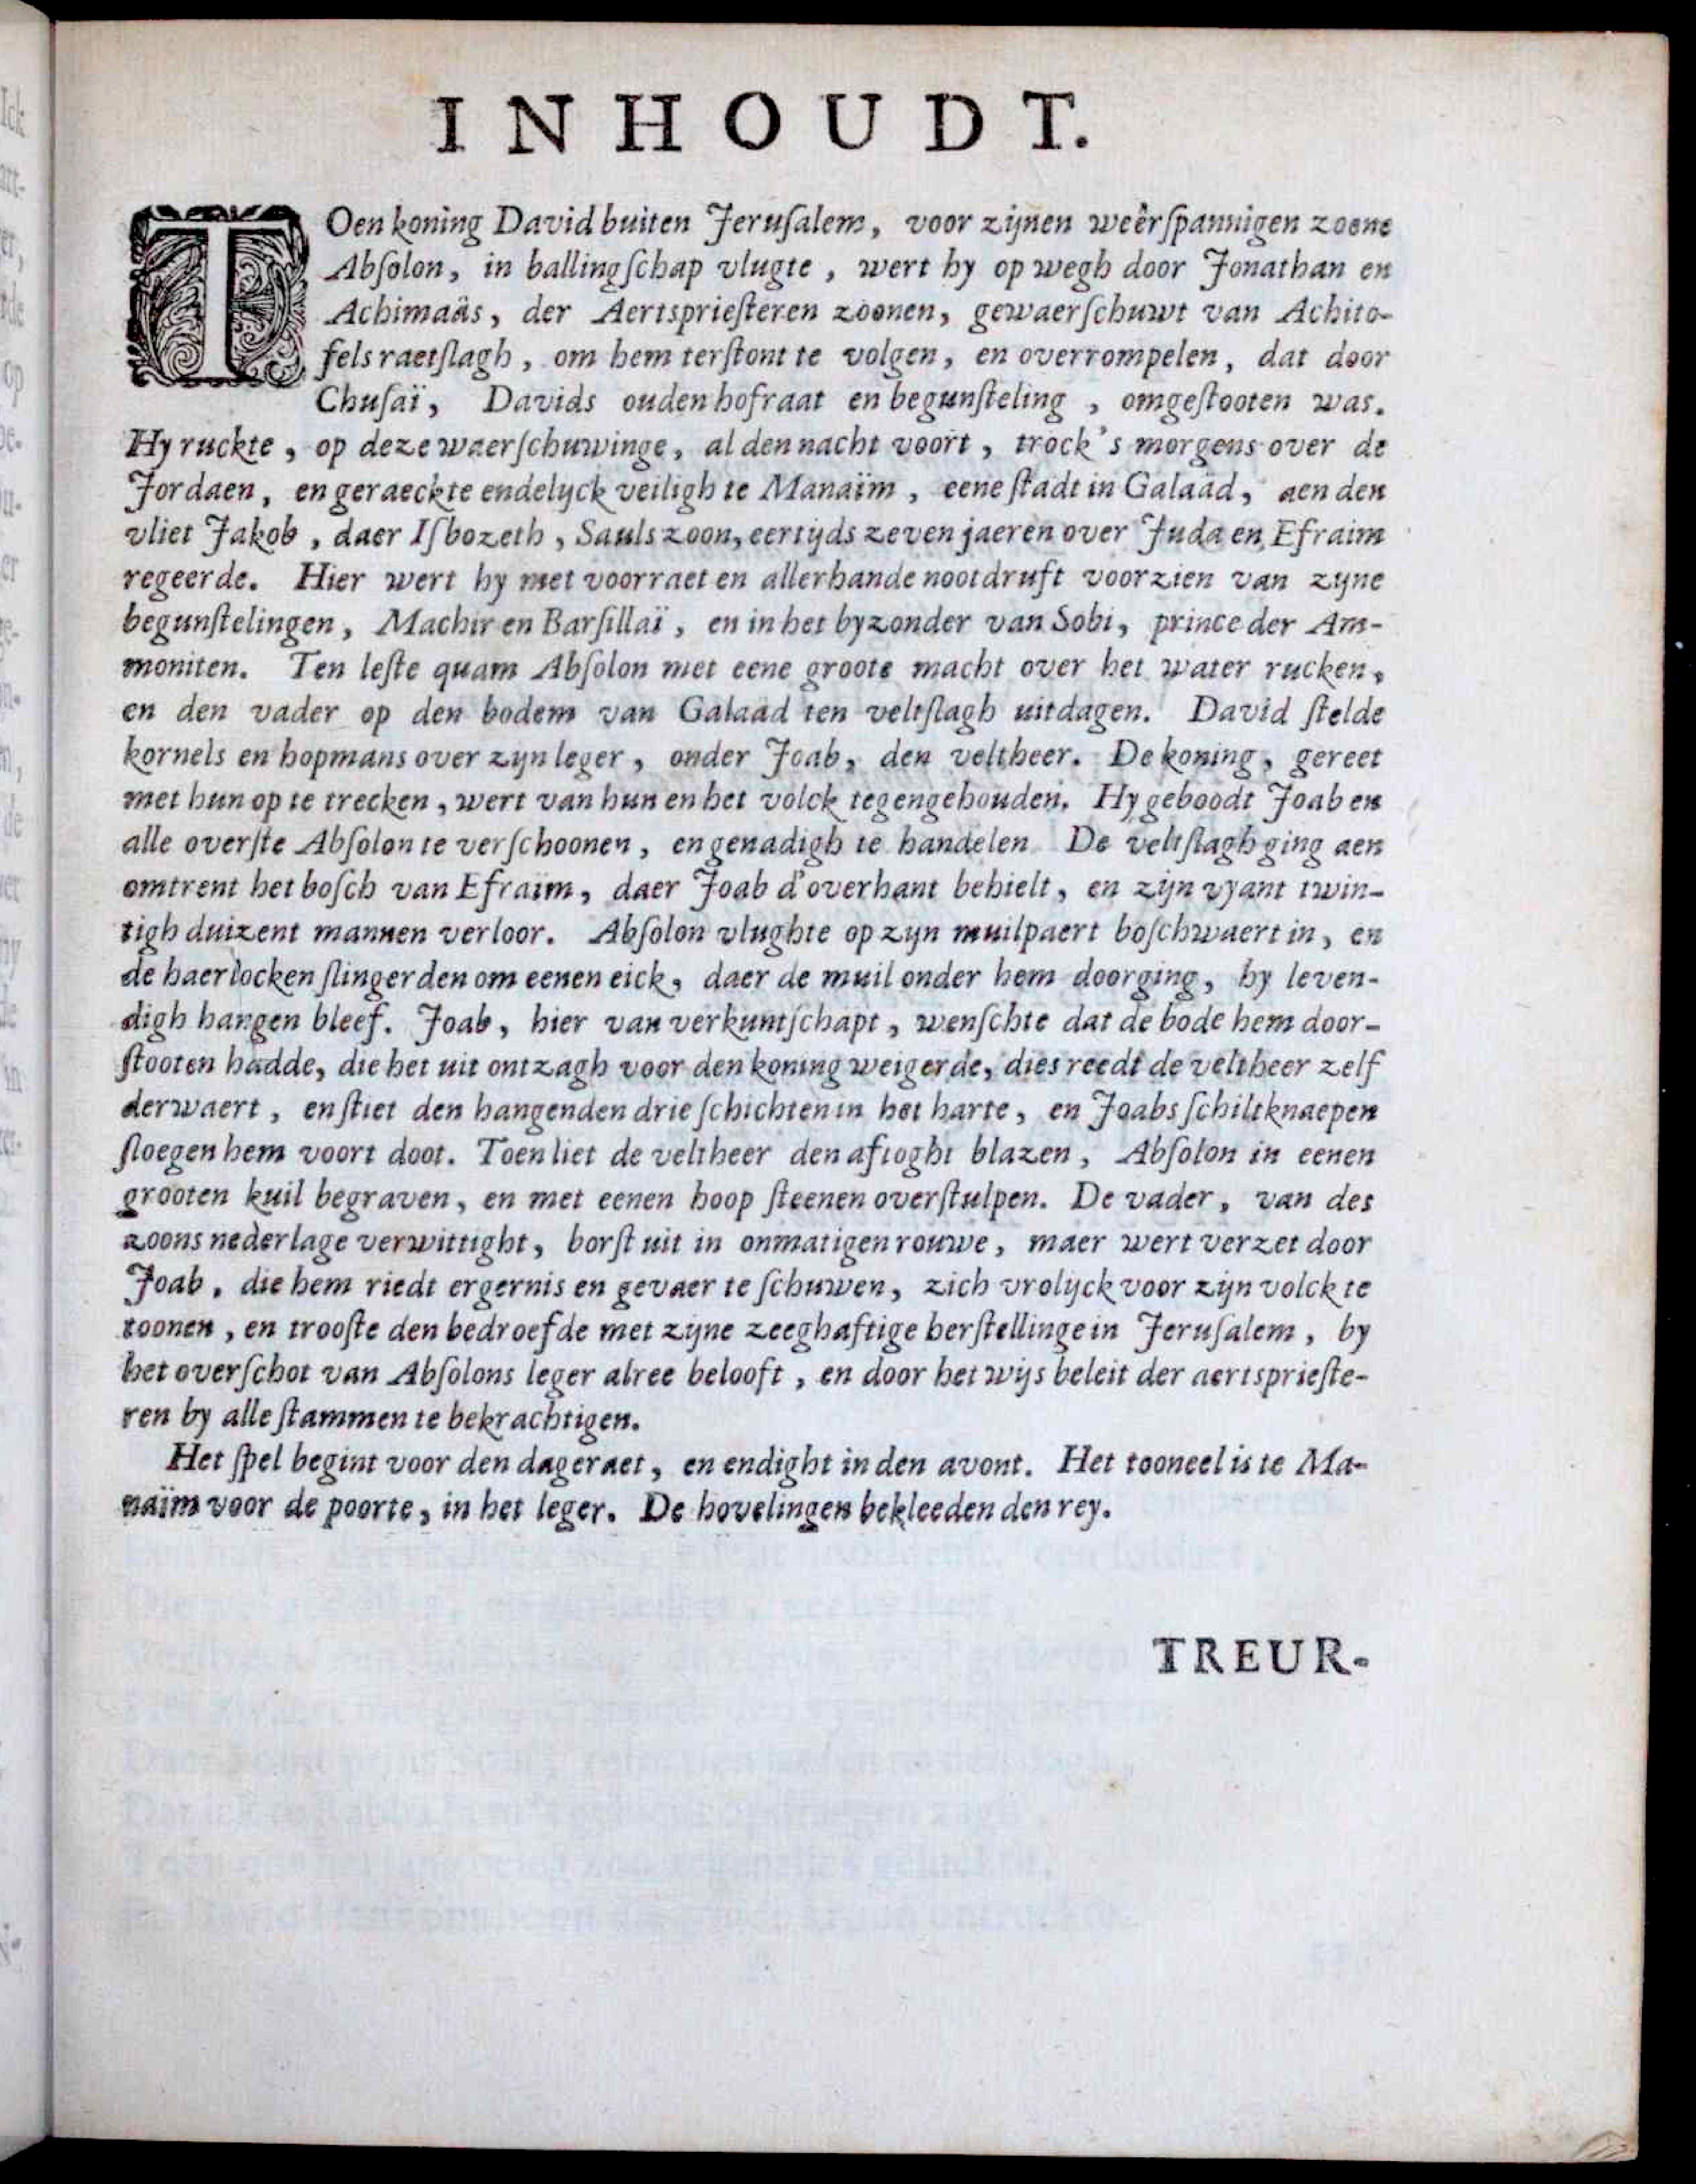 INHOUDT.
TOen koning David buiten Jeruſalem, voor zijnen weêrſpannigen zoone
Abſolon, in ballingſchap vlugte, wert hy op wegh door Jonathan en
Achimaäs, der Aertsprieſteren zoonen, gewaerſchuwt van Achito-
fels raetſlagh, om hem terſtont te volgen, en overrompelen, dat door
Chuſaï, Davids ouden hofraat en begunſteling, omgeſtooten was.
Hy ruckte, op deze waerſchuwinge, al den nacht voort, trock's morgens over de
Jordaen, en geraeckte endelyck veiligh te Manaïm, eene ſtadt in Galaäd, aen den
vliet Jakob, daer Iſbozeth, Sauls zoon, eertijds zeven jaeren over Juda en Efraim
regeerde. Hier wert hy met voorraet en allerhande nootdruft voorzien van zyne
begunſtelingen, Machir en Barſillaï, en in het byzonder van Sobi, prince der Am-
moniten. Ten leſte quam Abſolon met eene groote macht over het water rucken,
en den vader op den bodem van Galaäd ten veltſlagh uitdagen. David ſtelde
kornels en hopmans over zyn leger, onder Joab, den veltheer. De koning, gereet
met hun op te trecken, wert van hun en het volck tegengehouden. Hy geboodt Joab en
alle overſte Abſolon te verſchoonen, en genadigh te handelen. De veltſlagh ging aen
omtrent het boſch van Efraïm, daer Joab d'overhant behielt, en zijn vyant twin-
tigh duizent mannen verloor. Abſolon vlughte op zyn muilpaert boſchwaert in, en
de haerlocken ſlingerden om eenen eick, daer de muil onder hem doorging, hy leven-
digh hangen bleef. Joab, hier van verkuntſchapt, wenſchte dat de bode hem door-
ſtooten hadde, die het uit ontzagh voor den koning weigerde, dies reedt de veltheer zelf
derwaert, en ſtiet den hangenden drie ſchichten in het harte, en Joabs ſchiltknaepen
ſloegen hem voort doot. Toen liet de veltheer den aftoght blazen, Abſolon in eenen
grooten kuil begraven, en met eenen hoop ſteenen overſtulpen. De vader, van des
zoons nederlage verwittight, borſt uit in onmatigen rouwe, maer wert verzet door
Joab, die hem riedt ergernis en gevaer te ſchuwen, zich vrolyck voor zijn volck te
toonen, en trooſte den bedroefde met zijne zeeghaftige herſtellinge in Jeruſalem, by
het overſchot van Abſolons leger alree belooft, en door het wijs beleit der aertsprieſte-
ren by alle ſtammen te bekrachtigen.
Het ſpel begint voor den dageraet, en endight in den avont. Het tooneel is te Ma-
naïm voor de poorte, in het leger. De hovelingen bekleeden den rey.
TREUR-